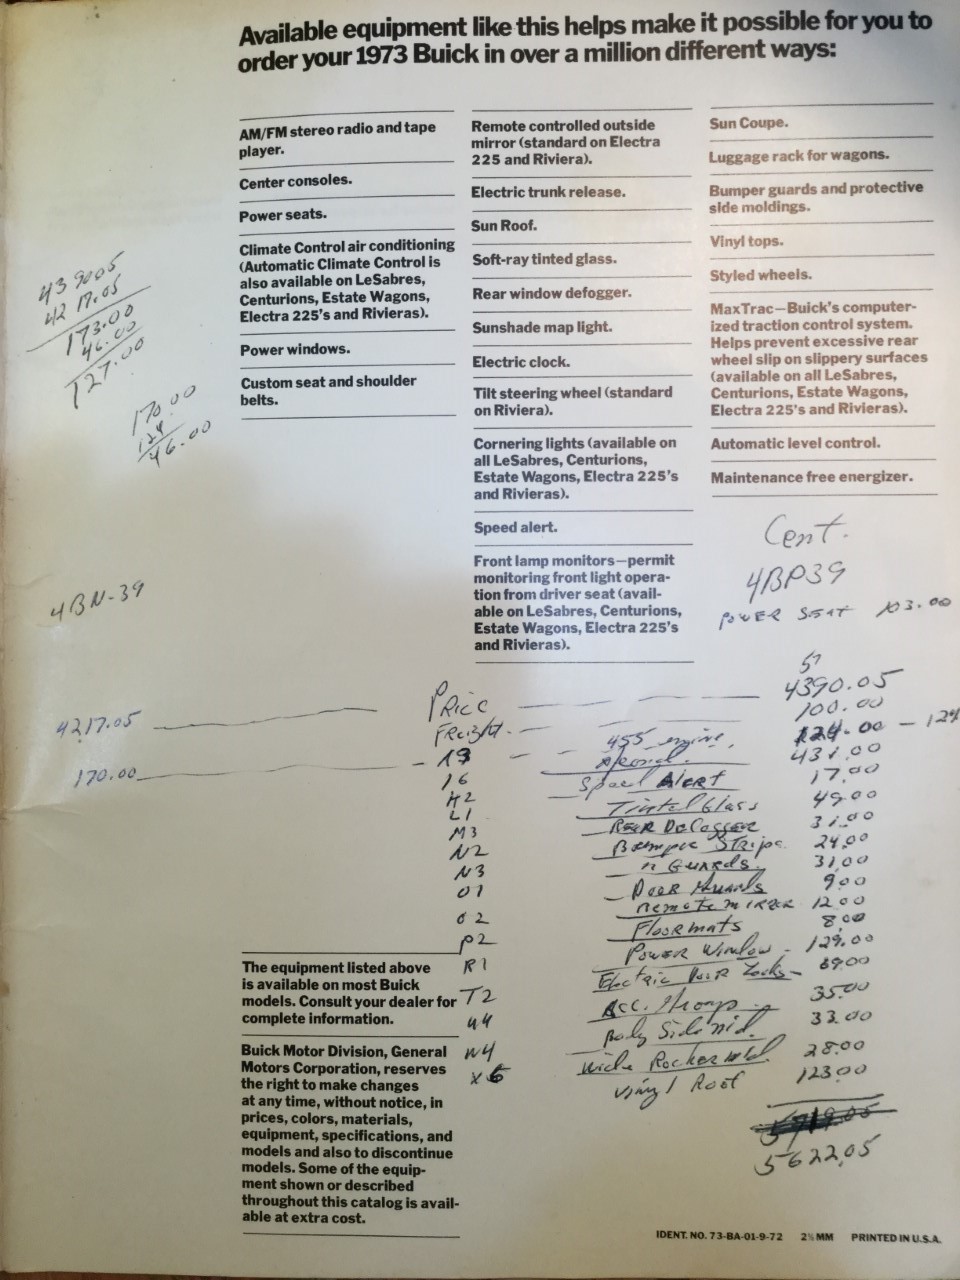 Available equipment like this helps make it possible for you to
order your 1973 Buick in over a million different ways:
AM/FM stereo radio and tape
player.
Center consoles.
Power seats.
Climate Control air conditioning
(Automatic Climate Control is
also available on LeSabres,
Centurions, Estate Wagons,
Electra 225's and Rivieras).
Power windows.
Custom seat and shoulder
belts.
Remote controlled outside
mirror (standard on Electra
225 and Riviera).
Electric trunk release.
Sun Roof.
Soft-ray tinted glass.
Rear window defogger.
Sunshade map light.
Electric clock.
Tilt steering wheel (standard
on Riviera).
Cornering lights (available on
all LeSabres, Centurions,
Estate Wagons, Electra 225's
and Rivieras).
Speed alert.
Front lamp monitors—permit
monitoring front light opera-
tion from driver seat (avail-
able on LeSabres, Centurions,
Estate Wagons, Electra 225's
and Rivieras).
Sun Coupe.
Luggage rack for wagons.
Bumper guards and protective
side moldings.
Vinyl tops.
Styled wheels.
MaxTrac—Buick's computer-
ized traction control system.
Helps prevent excessive rear
wheel slip on slippery surfaces
(available on all LeSabres,
Centurions, Estate Wagons,
Electra 225's and Rivieras).
Automatic level control.
Maintenance free energizer.
4390.05
4217.05
173.00
46.00
127.00
170.00
124
46.00
4BN-39
Cent.
4BP39
POWER SEAT 103.00
4217.05 Price 4390.05
Freight 100.00
170.00 455 engine 124.00 - 124
431.00
16 Speed ALERT 17.00
H2 Tinted Glass 49.00
L1 Rear Defogger 31.00
M3 Bumper Strips 24.00
N2 " Guards 31.00
N3 Door Guards 9.00
O1 Remote mirror 12.00
O2 Floormats 8.00
P2 Power Window - 129.00
R1 Electric Door Locks - 69.00
T2 Acc. Group 35.00
U4 Body Side mld. 33.00
W4 Wide Rocker mld. 28.00
X6 Vinyl Roof 123.00
5719.05
5622.05
The equipment listed above
is available on most Buick
models. Consult your dealer for
complete information.
Buick Motor Division, General
Motors Corporation, reserves
the right to make changes
at any time, without notice, in
prices, colors, materials,
equipment, specifications, and
models and also to discontinue
models. Some of the equip-
ment shown or described
throughout this catalog is avail-
able at extra cost.
IDENT. NO. 73-BA-01-9-72 2½ MM PRINTED IN U.S.A.